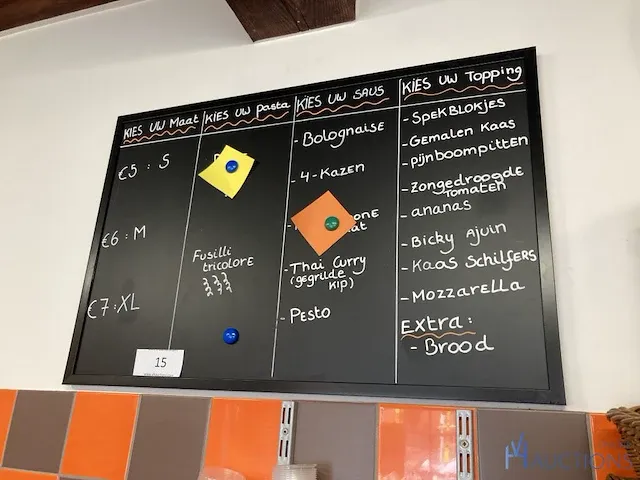 KIES UW Maat
€5 : S
€6 : M
€7 : XL
KIES UW pasta
Fusilli
tricolore
KIES UW SAUS
- Bolognaise
- 4-Kazen
- Thai Curry
(gegrilde
kip)
- Pesto
KIES UW Topping
- Spekblokjes
- Gemalen Kaas
- pijnboompitten
- Zongedroogde
Tomaten
- ananas
- Bicky Ajuin
- Kaas Schilfers
- Mozzarella
Extra:
- Brood
15
AUCTIONS